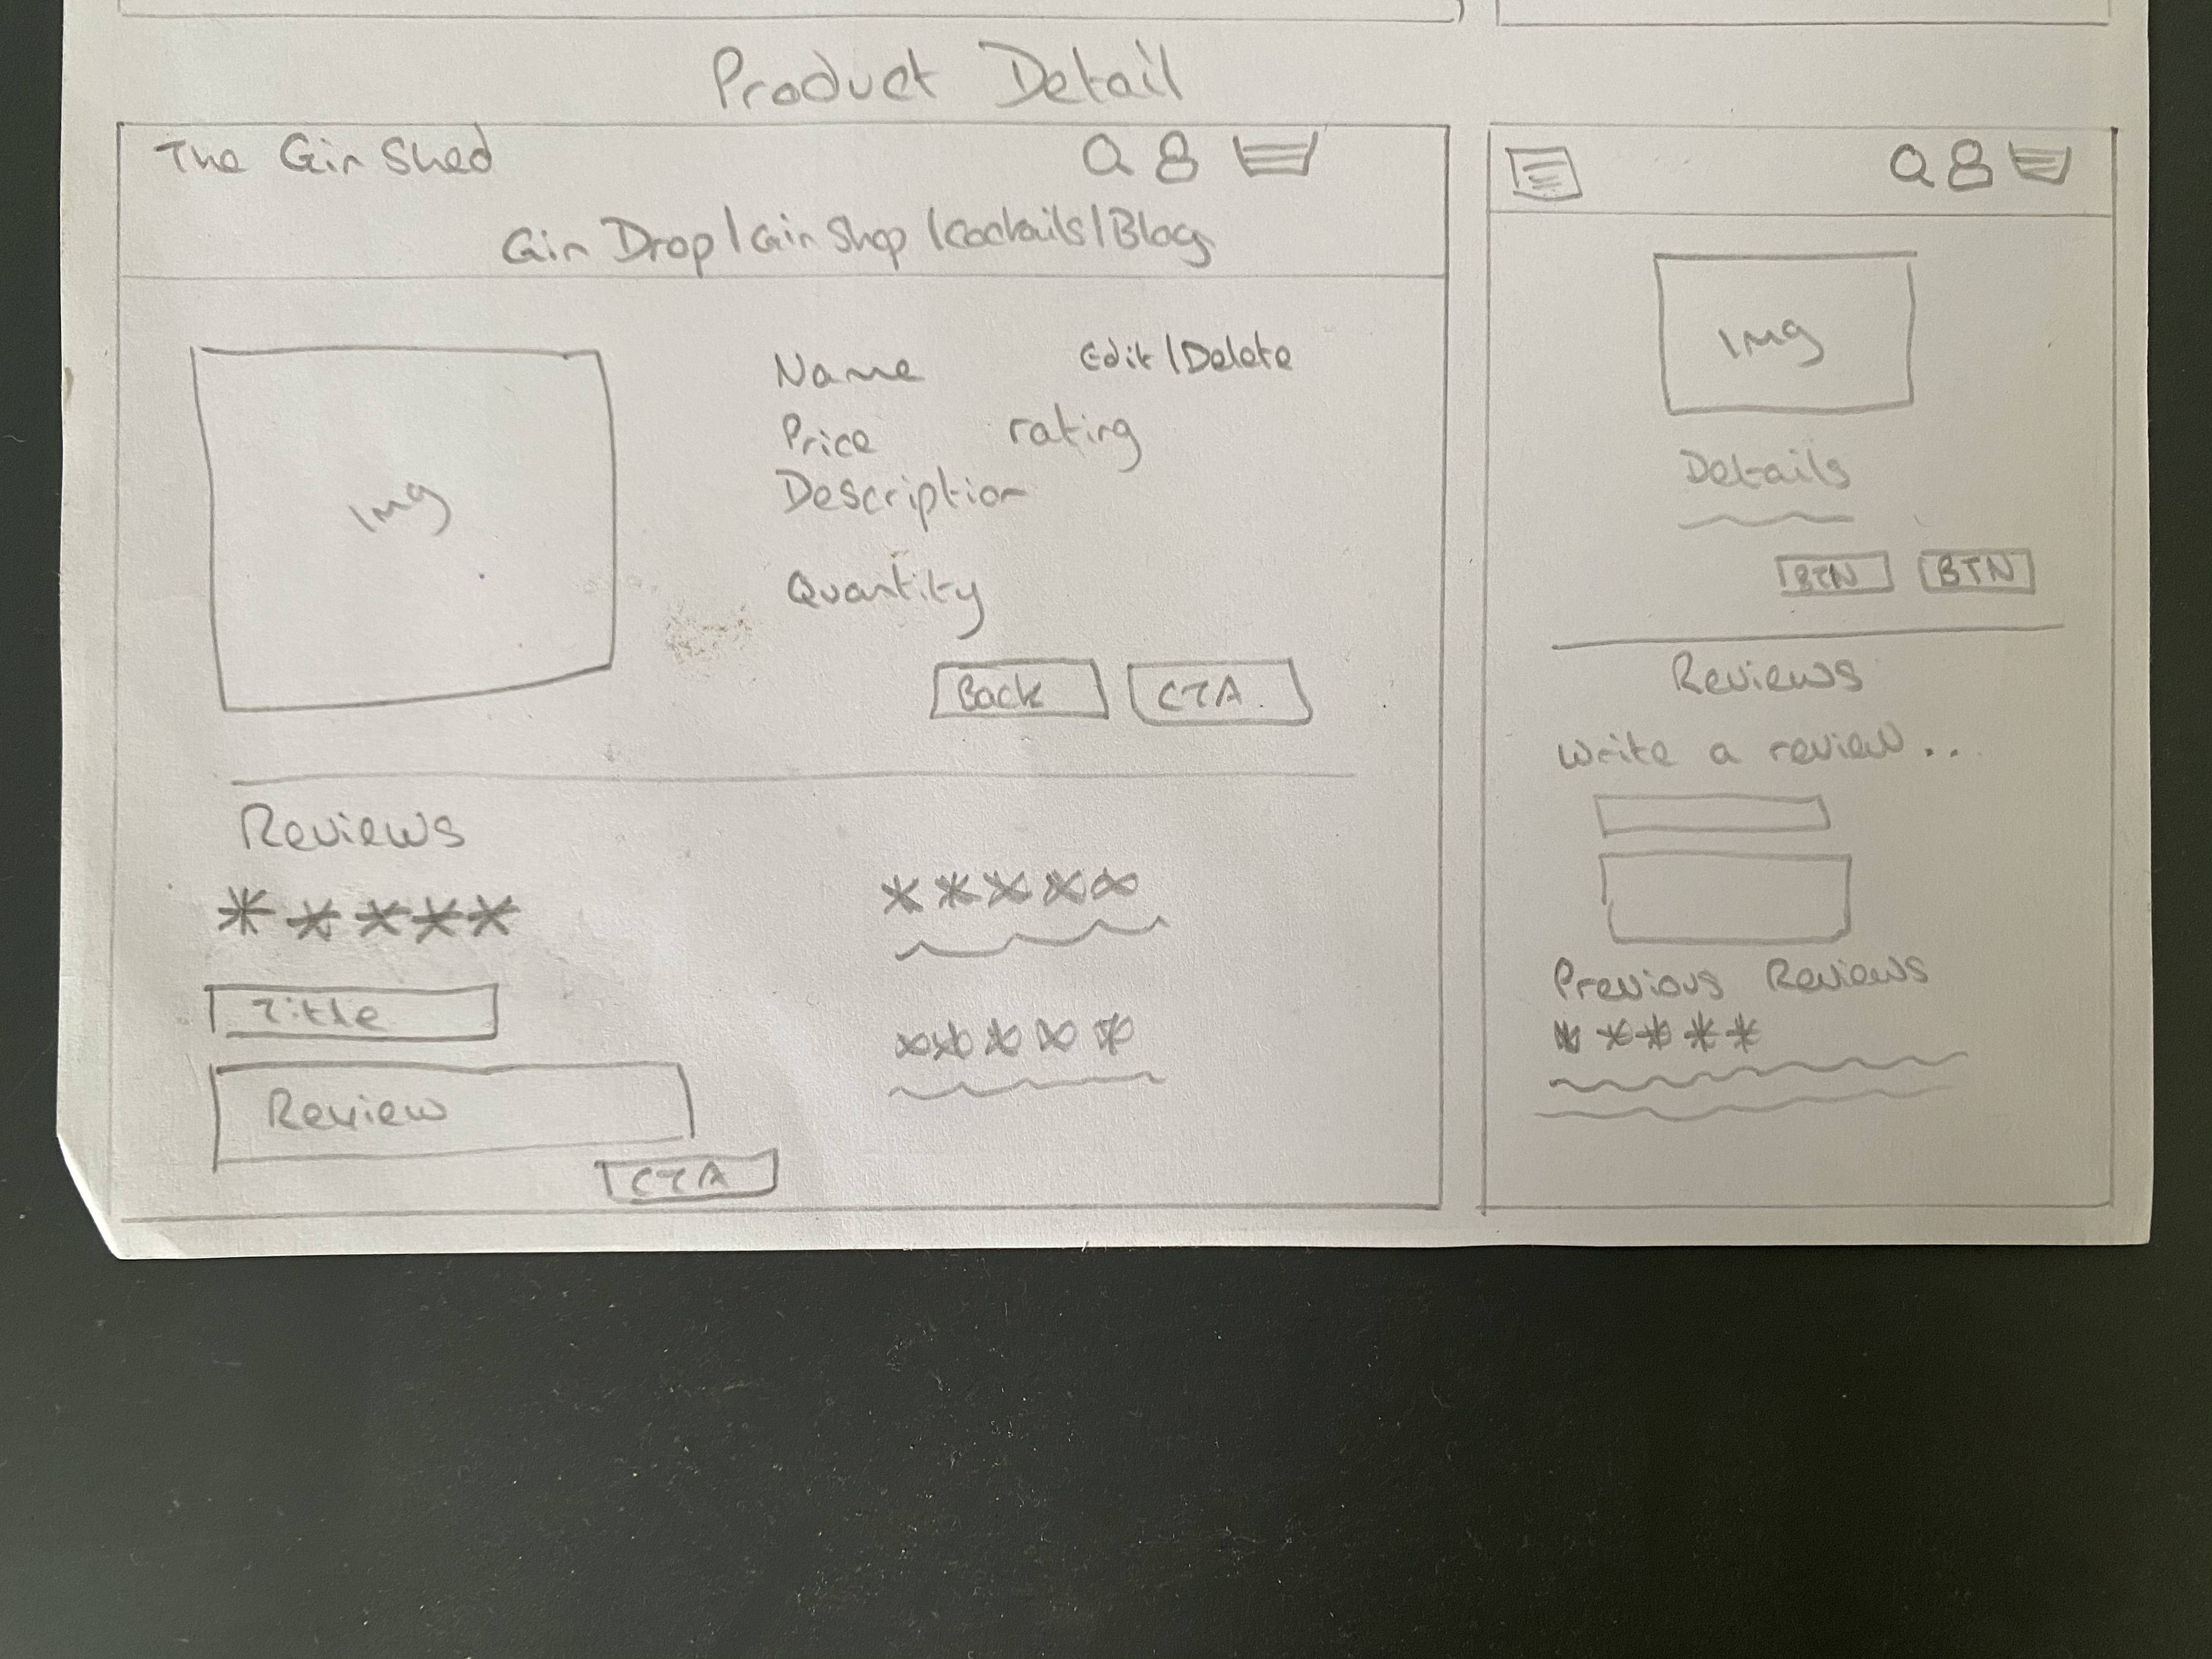 Product Detail
The Gin Shed
Gin Drop | Gin Shop | Cocktails | Blog
Img
Name Edit | Delete
Price rating
Description
Quantity
Back CTA
Reviews
*****
*****
Title
*****
Review
CTA
Img
Details
BTN BTN
Reviews
Write a review...
Previous Reviews
*****